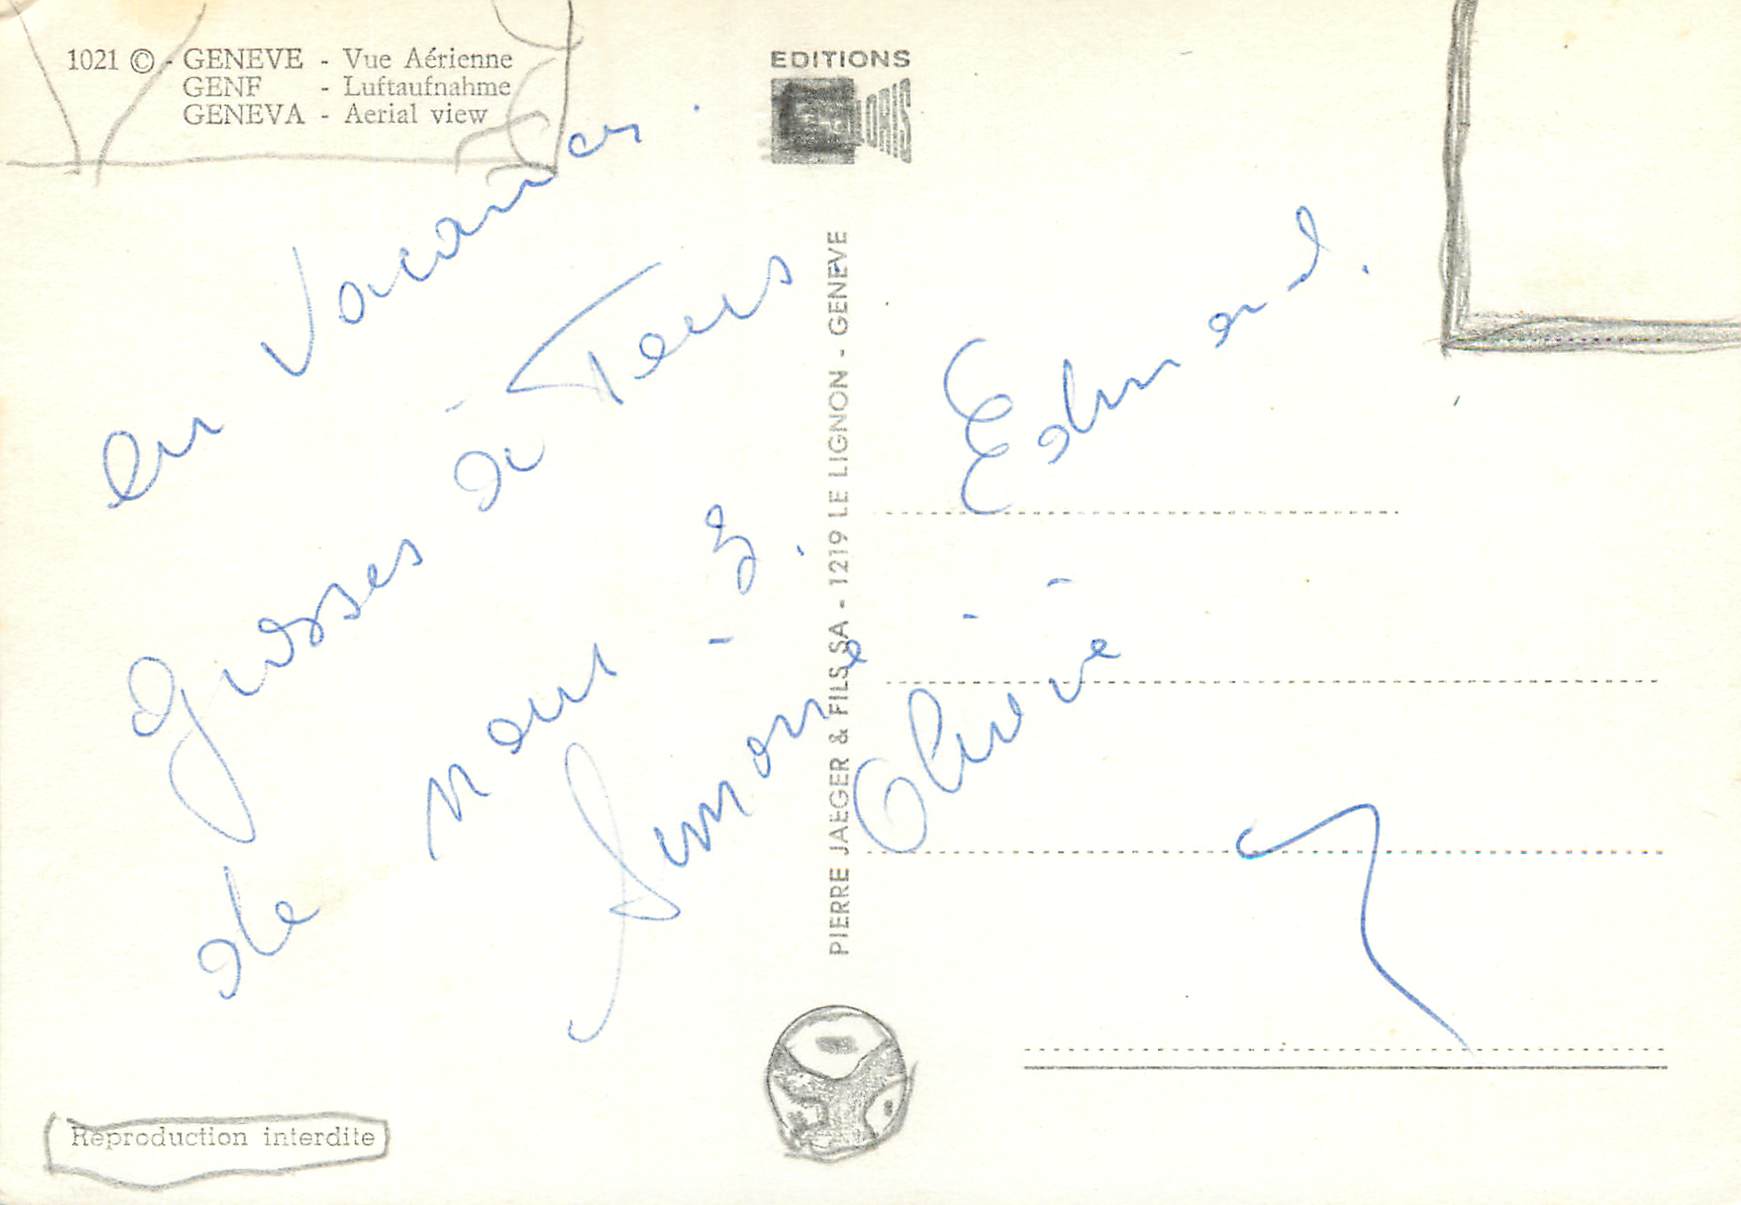 1021 © - GENEVE - Vue Aérienne
GENF - Luftaufnahme
GENEVA - Aerial view
EDITIONS
en vacances.
grosses à Tous
de nous 3.
Simone - Edmond.
Olivie
PIERRE JAEGER & FILS SA - 1219 LE LIGNON - GENEVE
Reproduction interdite